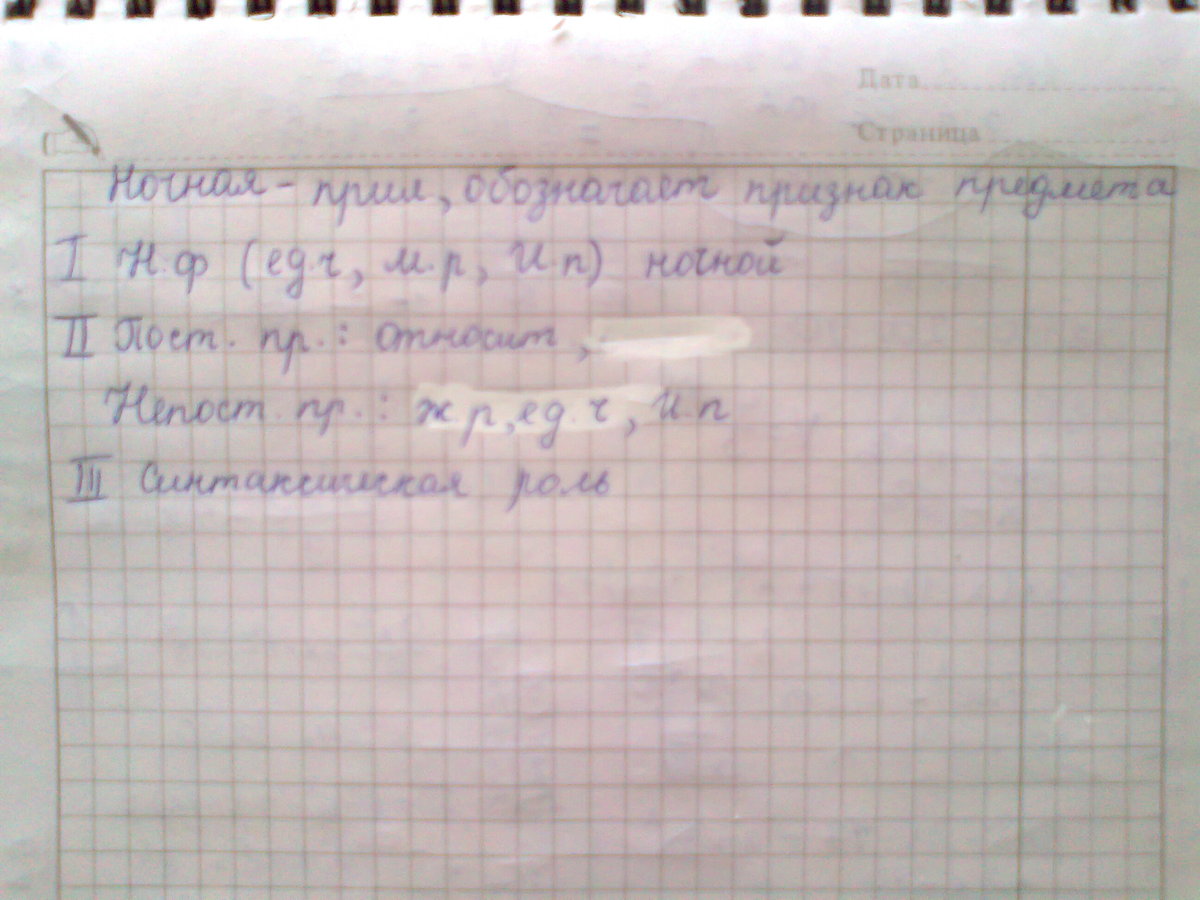 Дата
Страница
Ночная - прил, обозначает признак предмета
I Н.ф (ед.ч, м.р, И.п) ночной
II Пост. пр.: относит,
Непост. пр.: ж р, ед.ч, И.п
III Синтаксическая роль